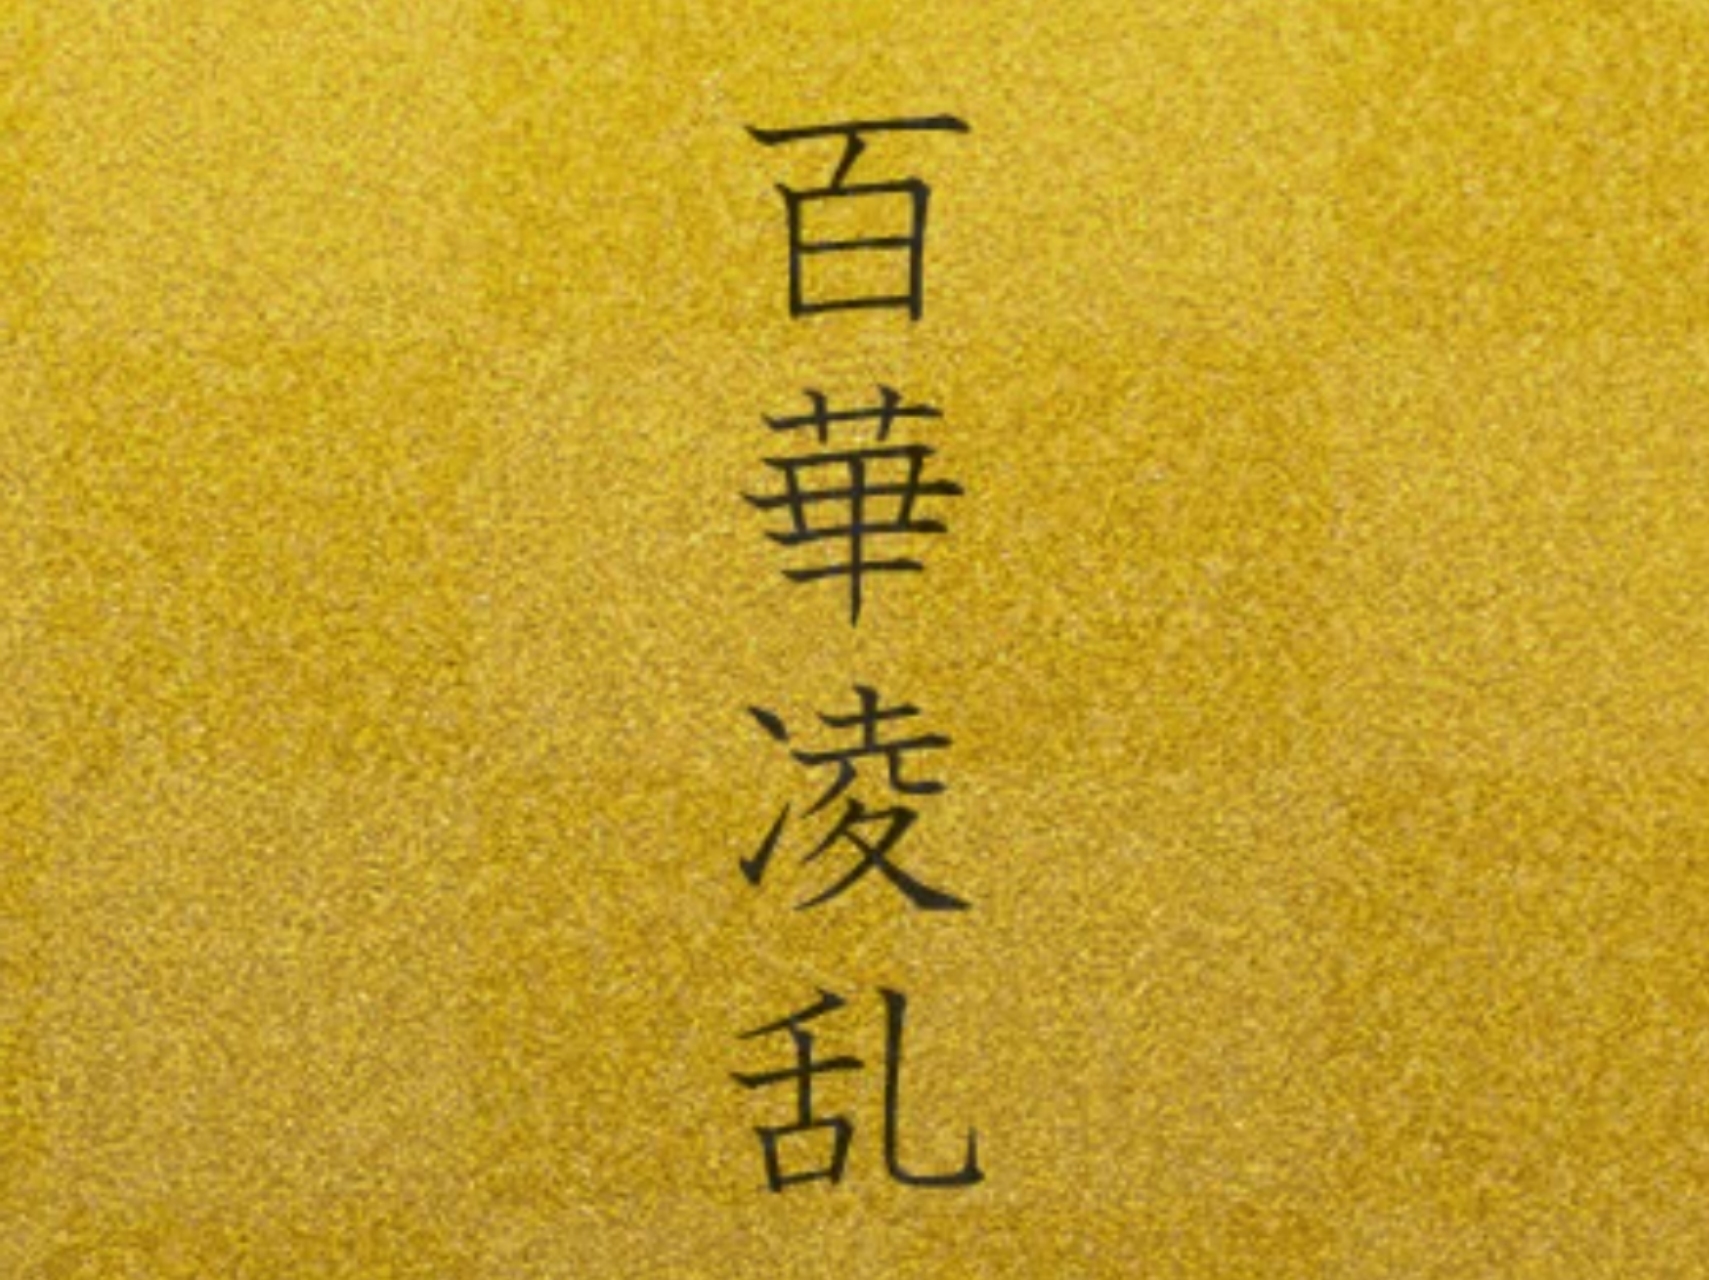 百華凌乱